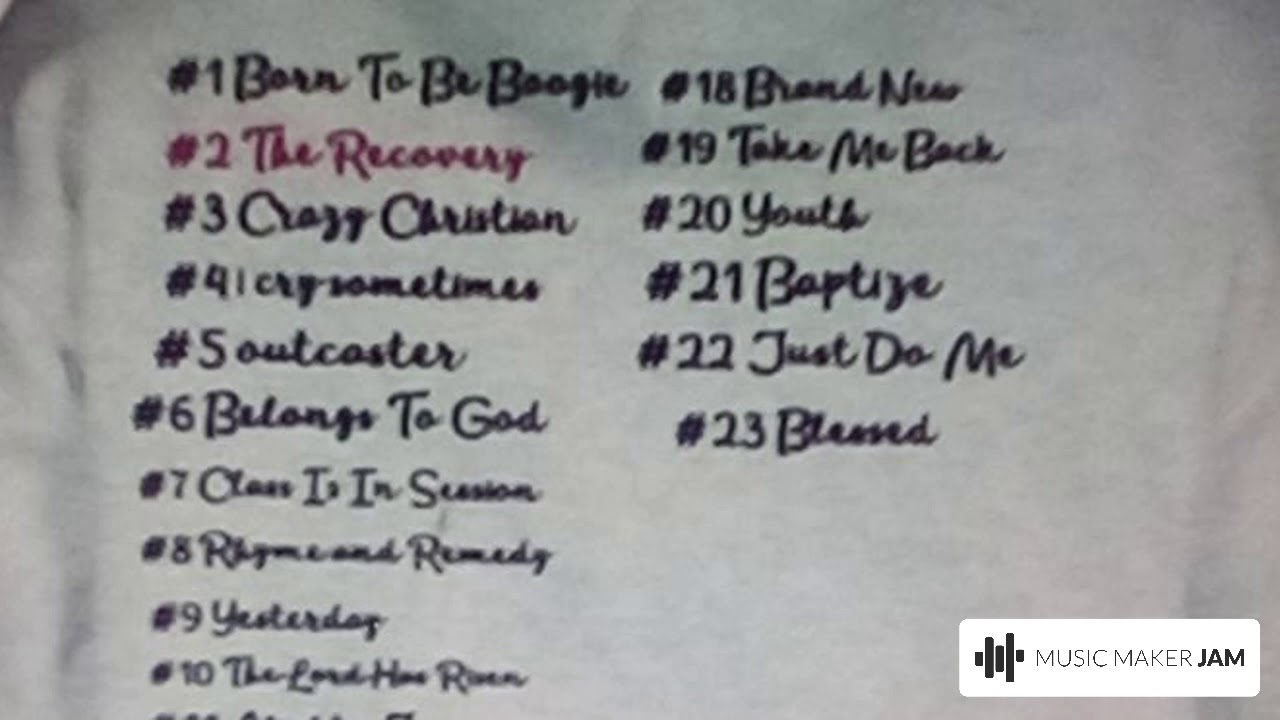 #1 Born To Be Boogie
#2 The Recovery
#3 Crazy Christian
#4 I cry sometimes
#5 outcaster
#6 Belongs To God
#7 Class Is In Session
#8 Rhyme and Remedy
#9 Yesterday
#10 The Lord Has Risen
#18 Brand New
#19 Take Me Back
#20 Youth
#21 Baptize
#22 Just Do Me
#23 Blessed
MUSIC MAKER JAM